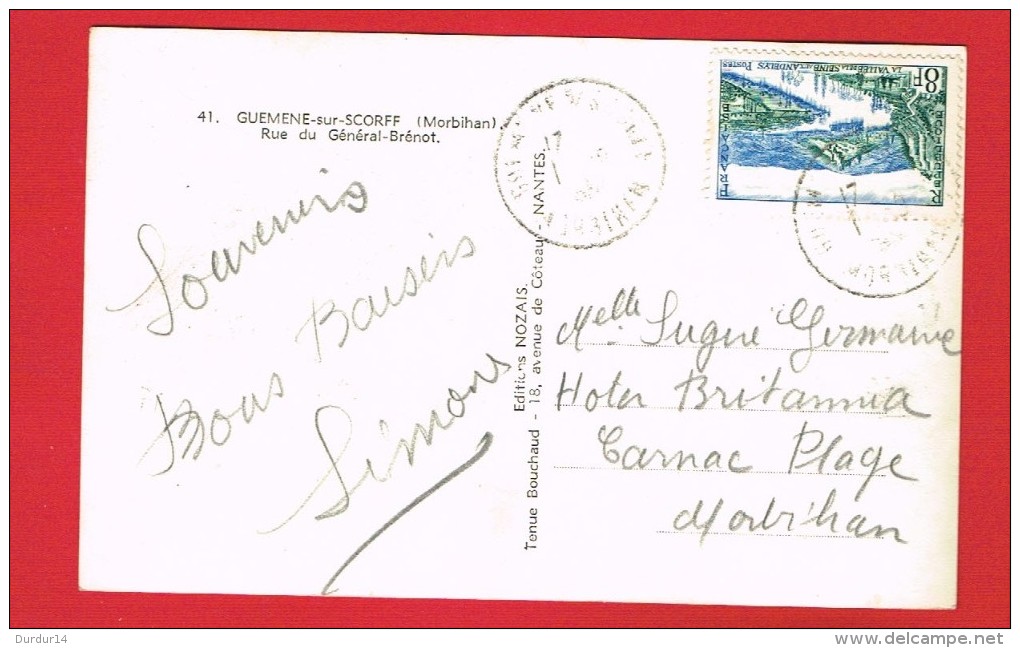 41. GUEMENE-sur-SCORFF (Morbihan).
Rue du Général-Brénot.
Souvenirs
Bons Baisers
Simone
Editions NOZAIS.
Tenue Bouchaud - 18, avenue de Côteau - NANTES.
8F
LA VALLÉE DE LA SEINE AUX ANDELYS POSTES
REPUBLIQUE
FRANCAISE
MORBIHAN
17
Melle Sugné Germaine
Hotel Britannia
Carnac Plage
Morbihan
Durdur14
www.delcampe.net